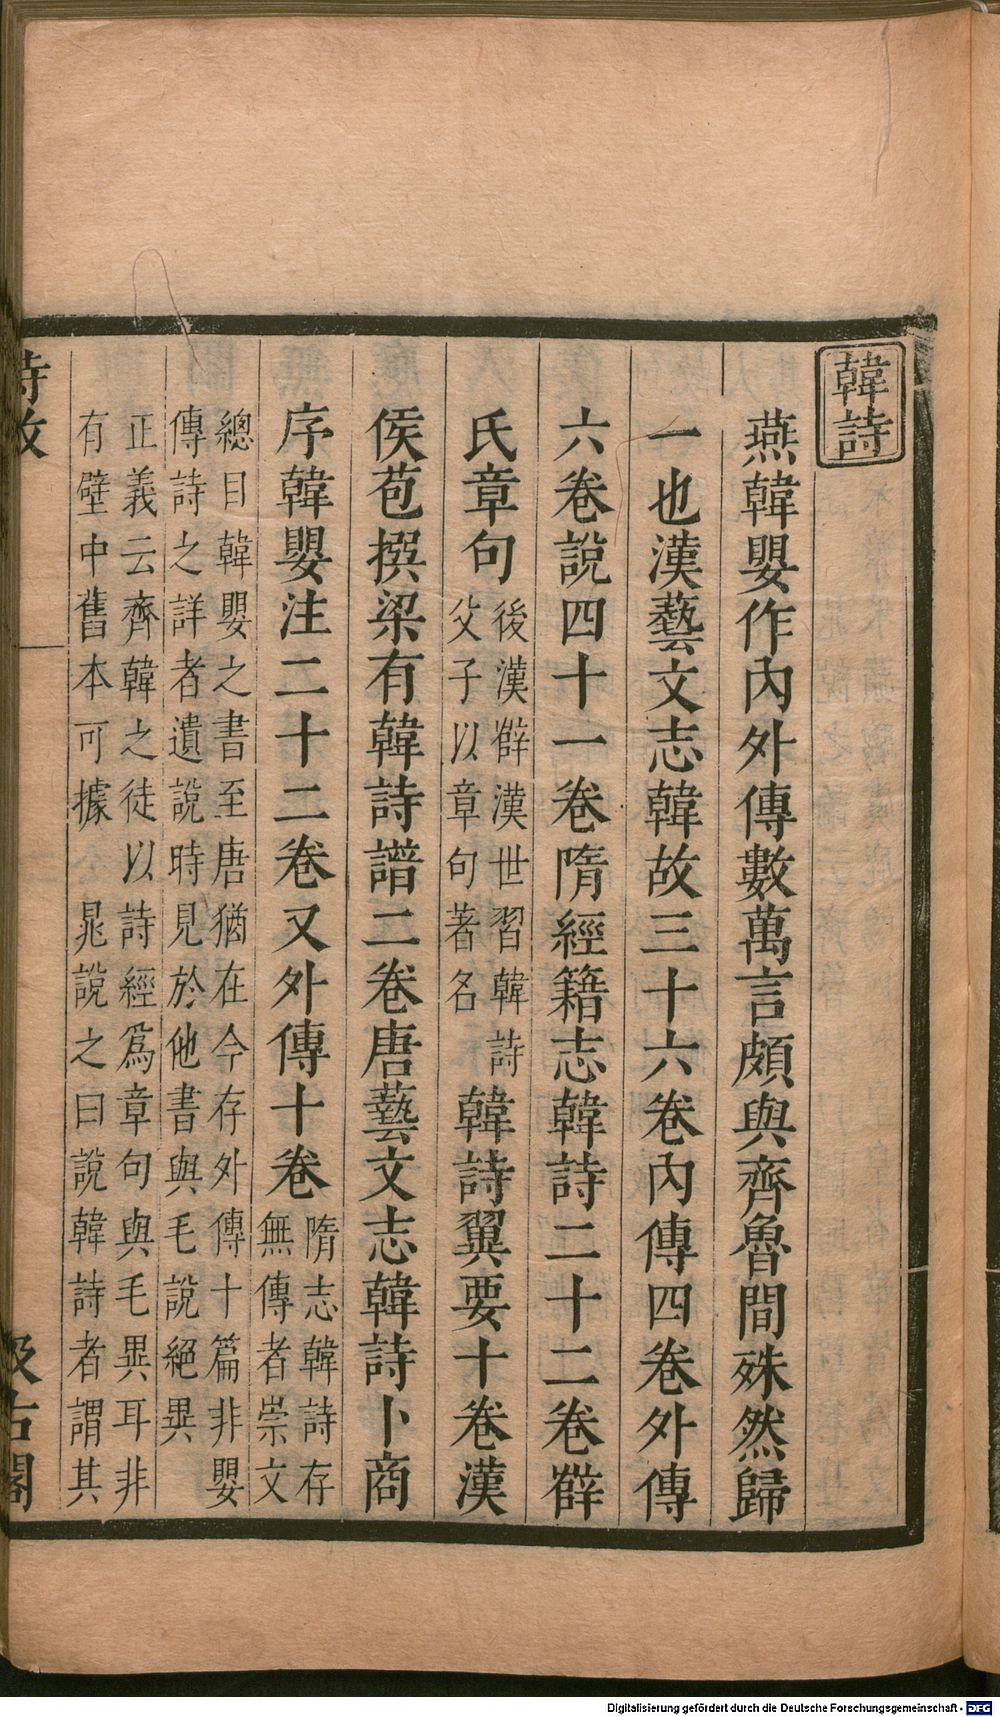 韓詩
燕韓嬰作內外傳數萬言頗與齊魯間殊然歸
一也漢藝文志韓故三十六卷內傳四卷外傳
六卷說四十一卷隋經籍志韓詩二十二卷薛
氏章句
後漢薛漢世習韓詩
父子以章句著名
韓詩翼要十卷漢
侯苞撰梁有韓詩譜二卷唐藝文志韓詩卜商
序韓嬰注二十二卷又外傳十卷
隋志韓詩存
無傳者崇文
總目韓嬰之書至唐猶在今存外傳十篇非嬰
傳詩之詳者遺說時見於他書與毛說絕異
正義云齊韓之徒以詩經爲章句與毛異耳非
有壁中舊本可據　晁說之曰說韓詩者謂其
詩攷
汲古閣
Digitalisierung gefördert durch die Deutsche Forschungsgemeinschaft - DFG